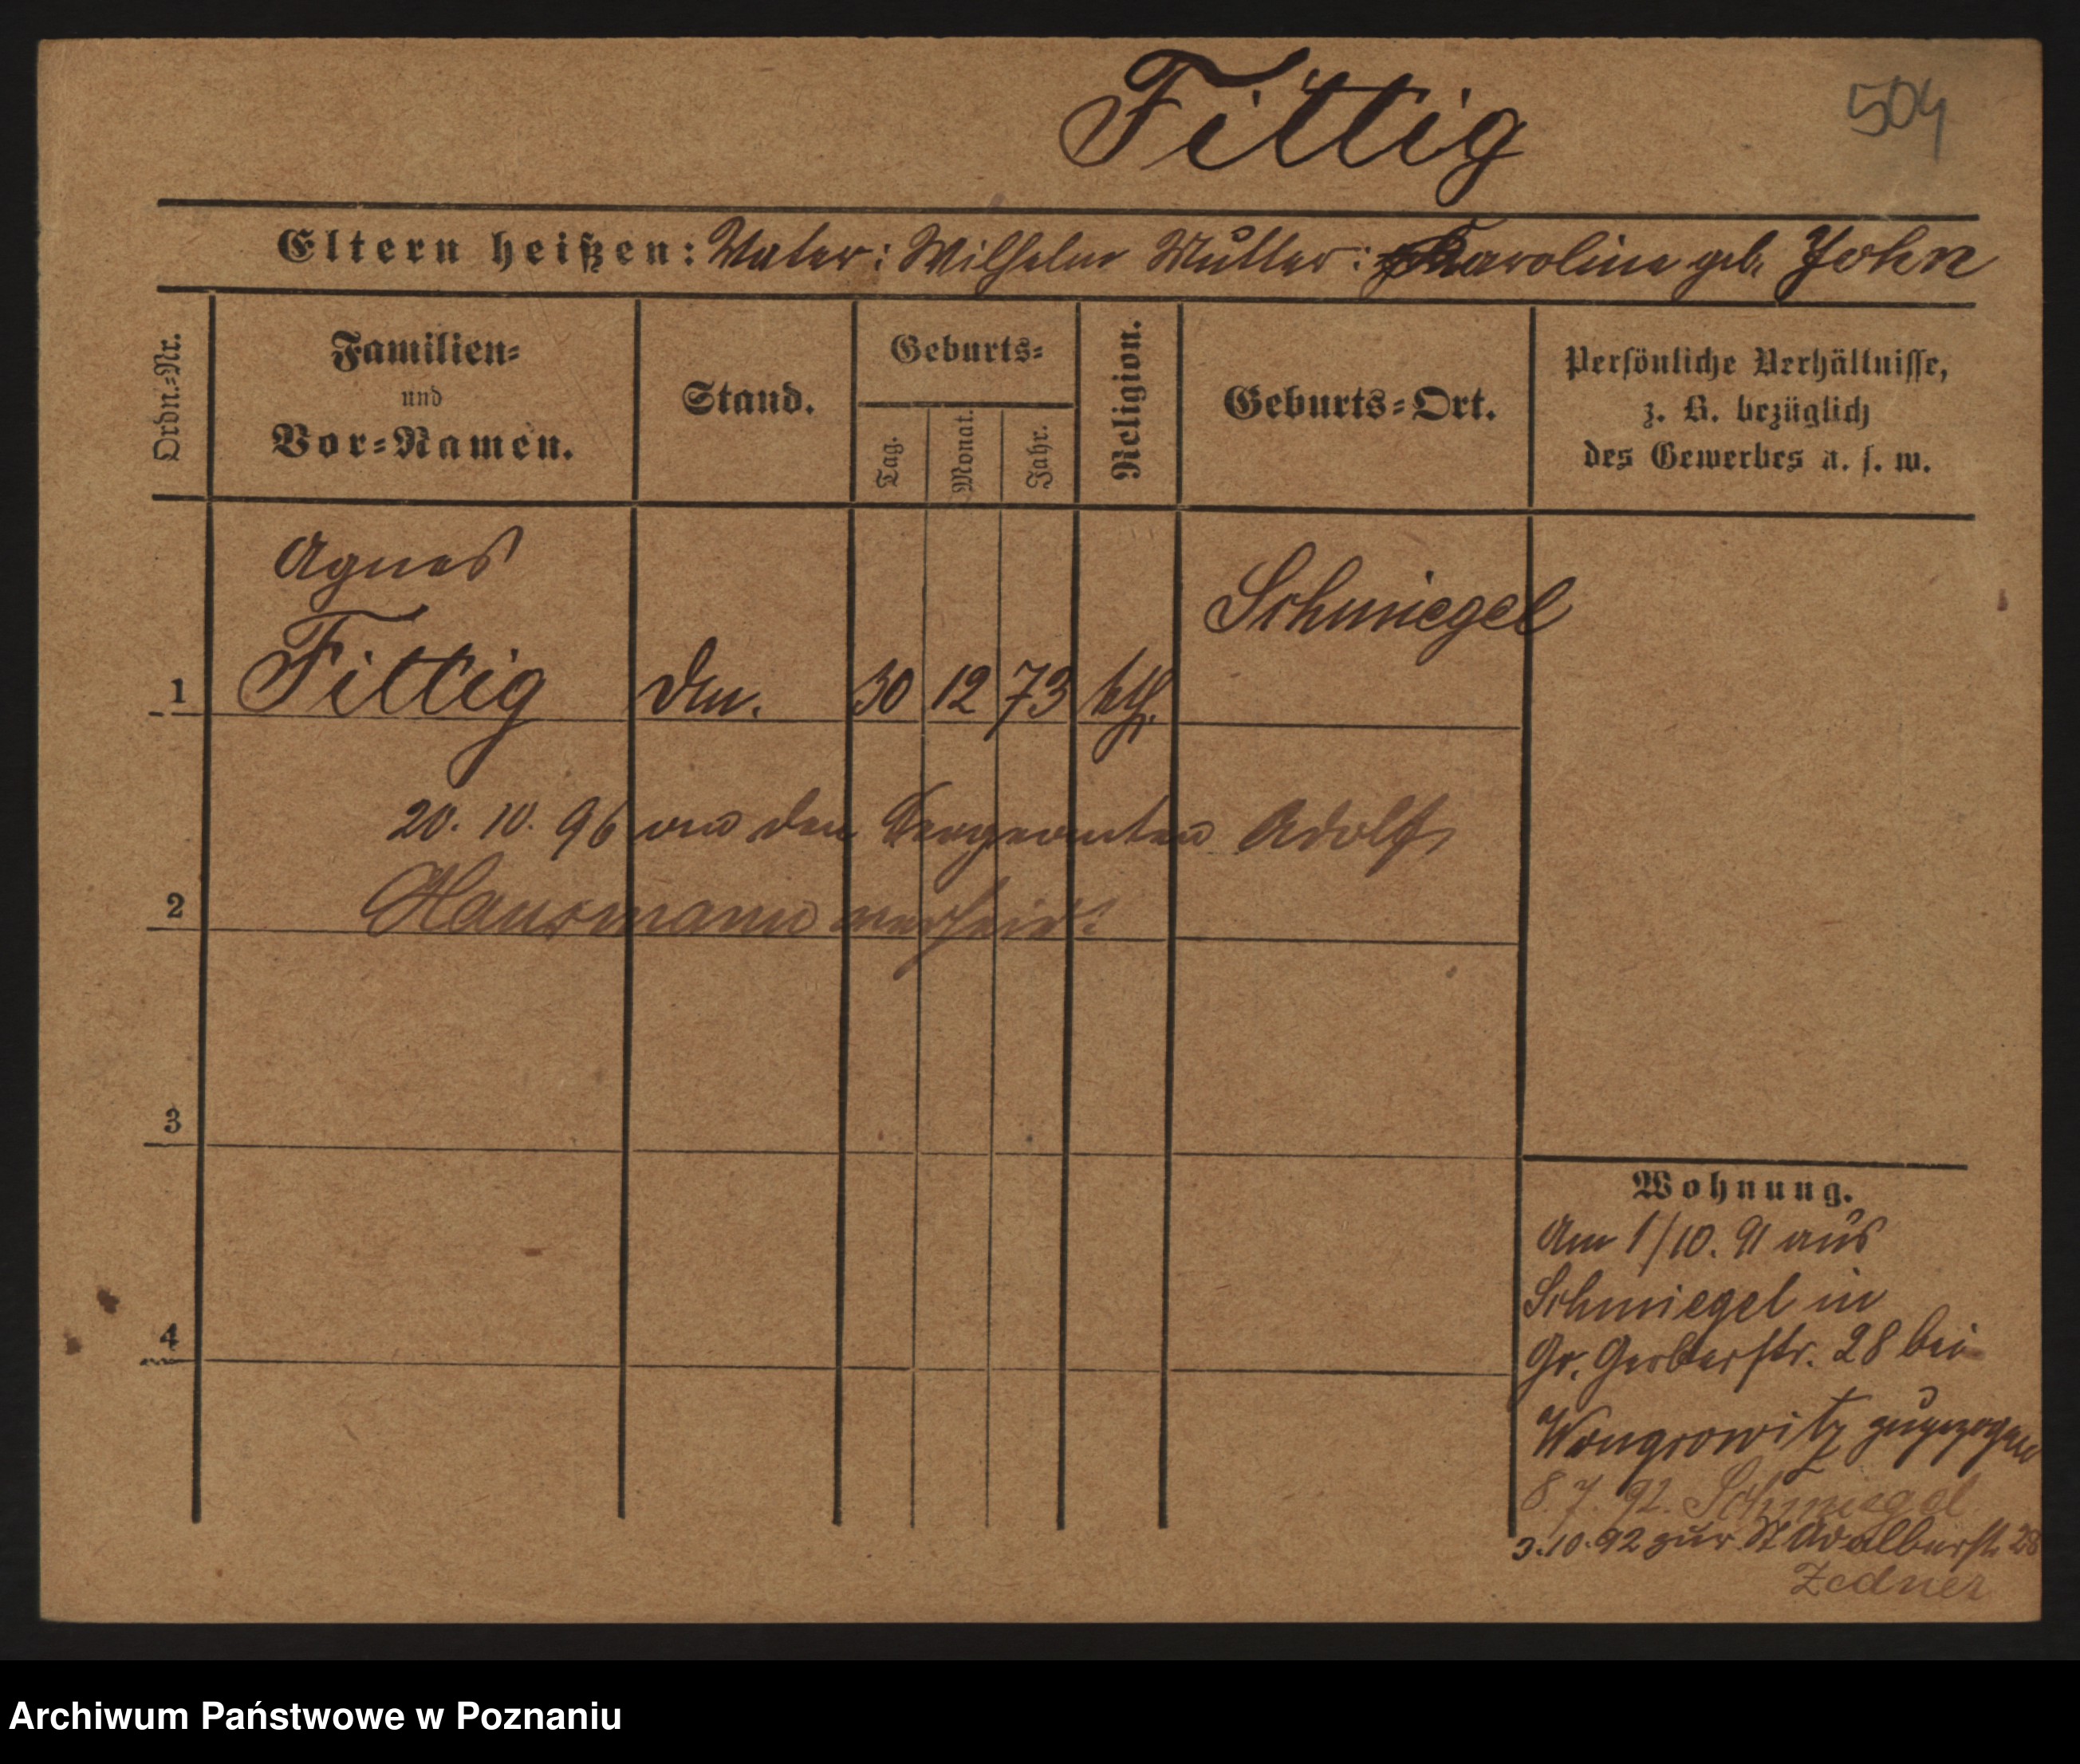 Fittig
504
Eltern heißen: Vater: Wilhelm Mutter: Karoline geb. John
Ordn.=Nr.
Familien=
und
Vor=Namen.
Stand.
Geburts=
Tag.
Monat.
Jahr.
Religion.
Geburts=Ort.
Persönliche Verhältnisse,
z. B. bezüglich
des Gewerbes u. s. w.
Agnes
1 Fittig 30 12 73 kth. Schmiegel
20. 10. 96 an den Sergeanten Adolf
2 Hausmann verheir.
3
4
Wohnung.
Am 1/10. 91 aus
Schmiegel in
Gr. Gerberstr. 28 bei
Wongrowitz zugezogen
8. 7. 92. Schmiegel
3.10.92 zur. St Adalbertstr 28
Zedner
Archiwum Państwowe w Poznaniu